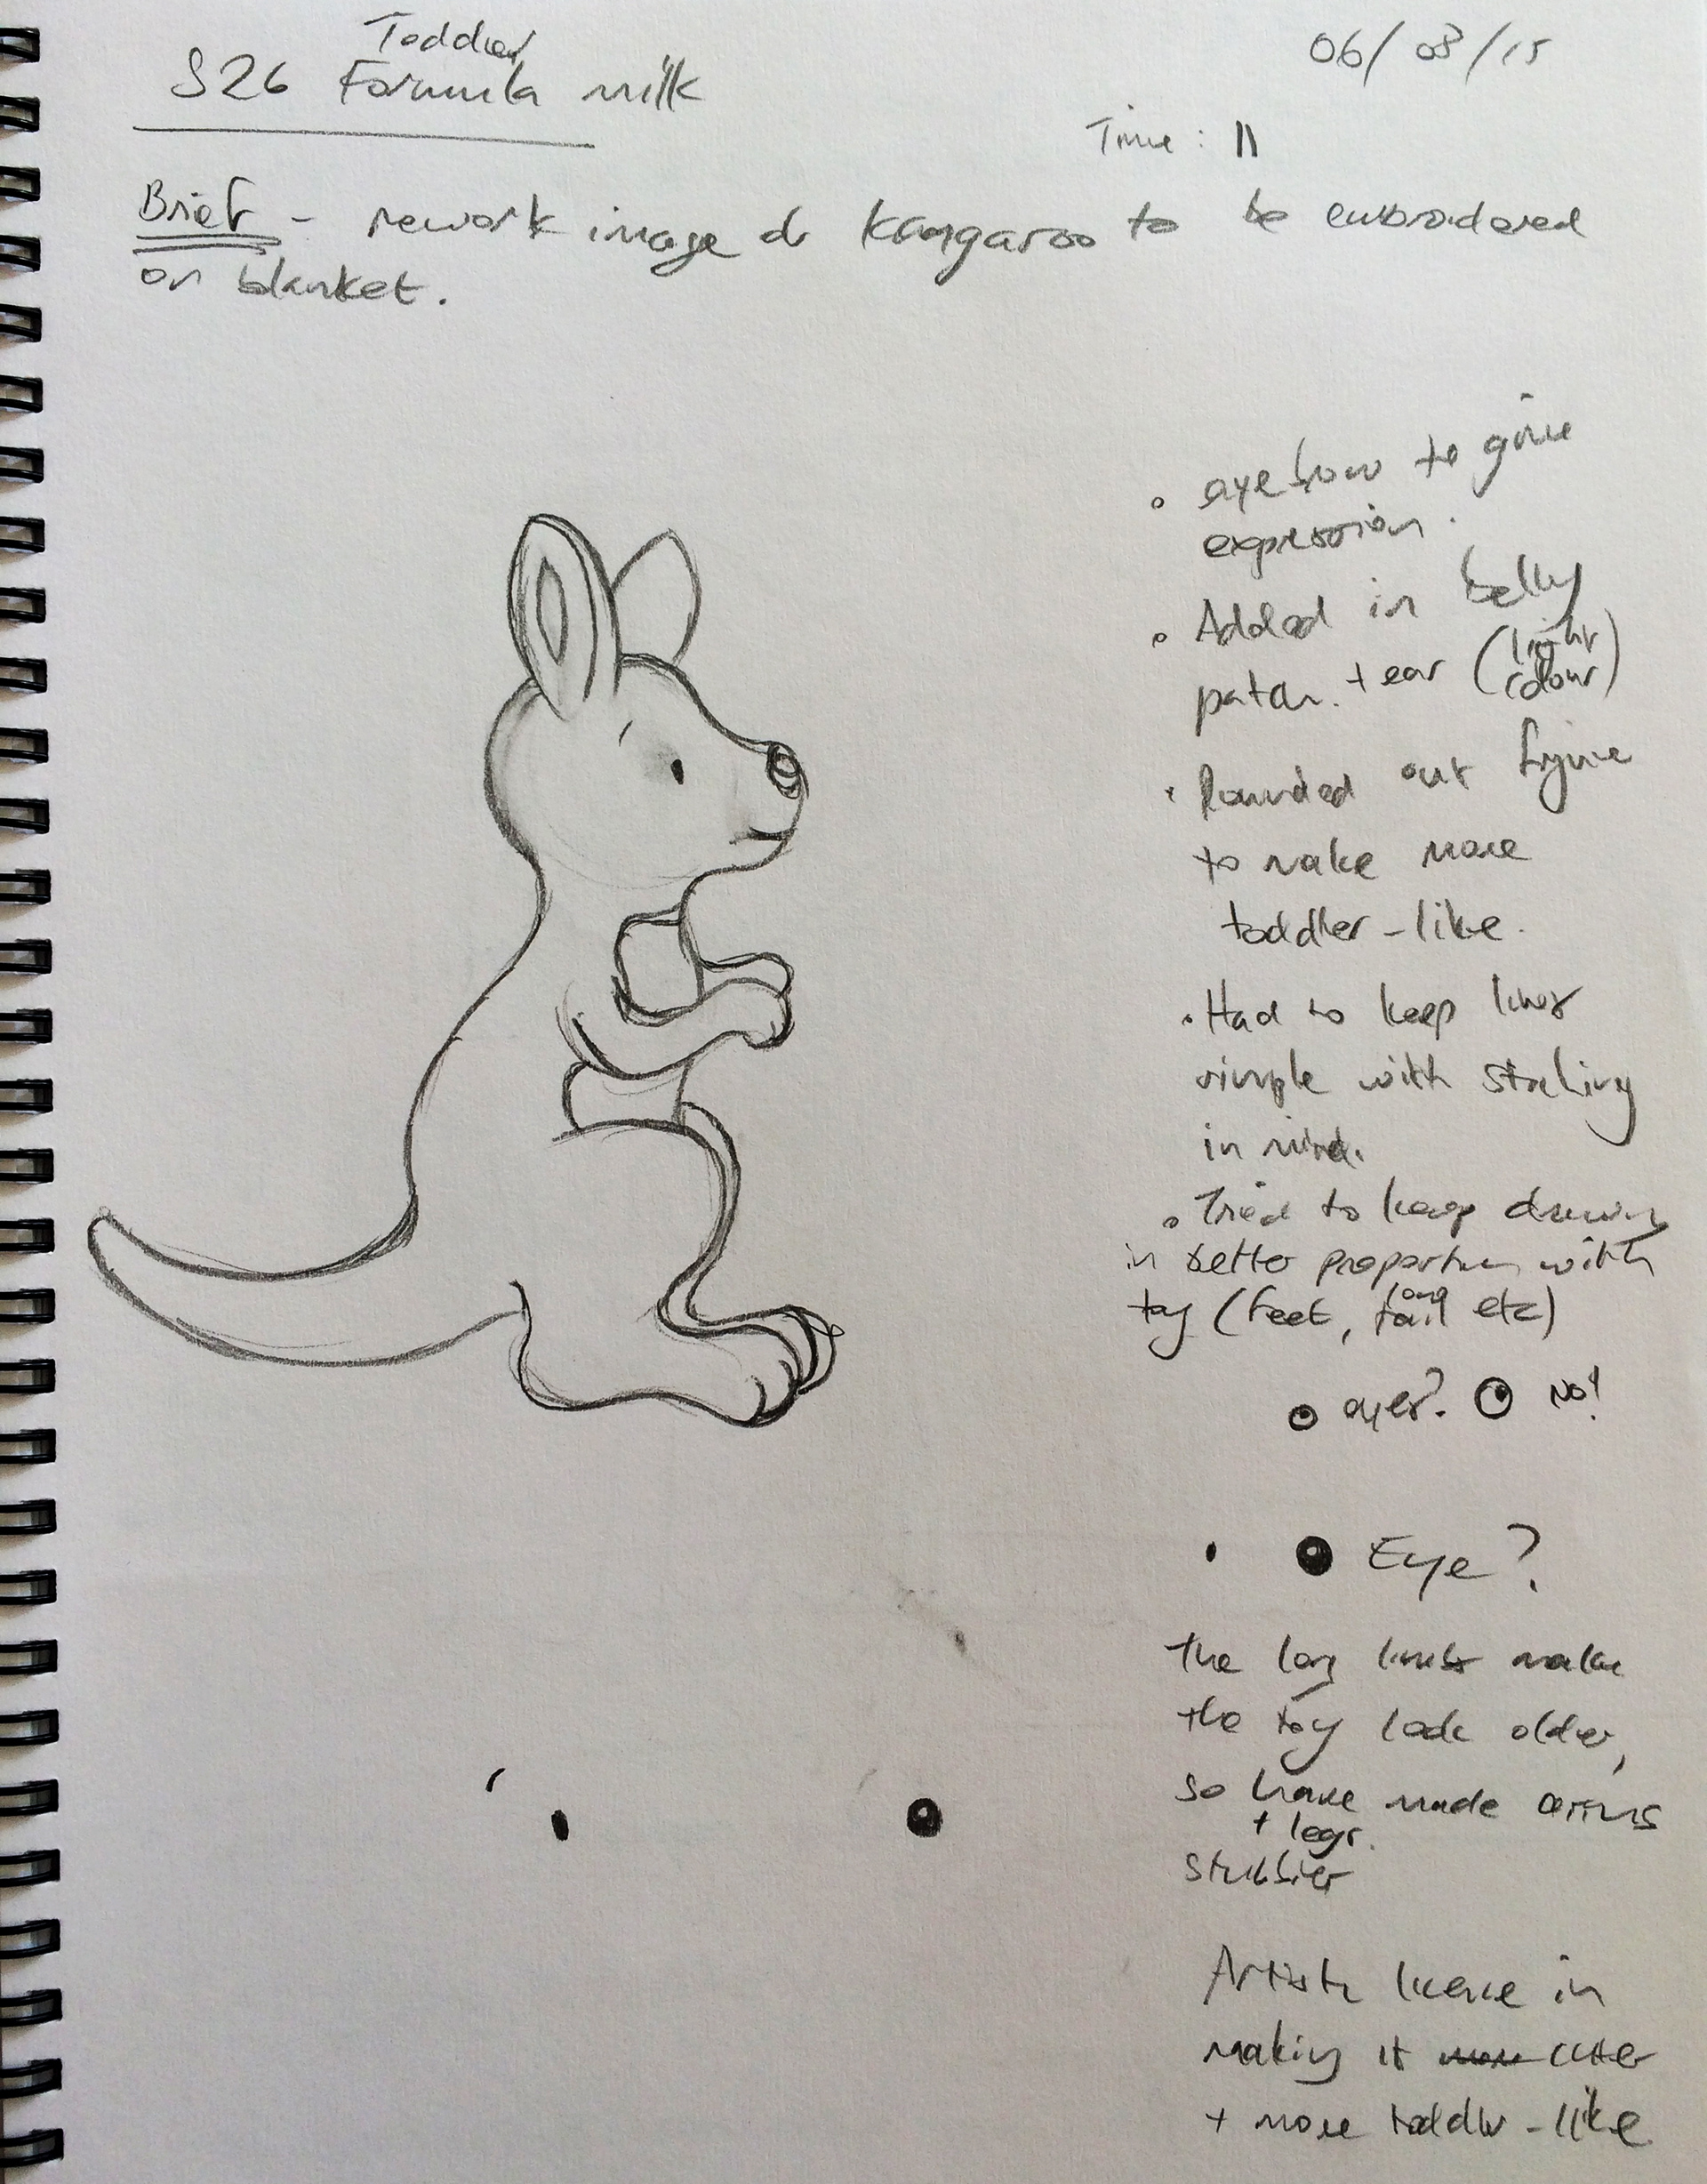 S26 Toddler Formula milk
06/08/15
Time: 11
Brief - rework image of kangaroo to be embroidered
on blanket.
• eyebrow to give
expression.
• Added in belly
patch. + ear (light colour)
• Rounded out figure
to make more
toddler-like.
• Had to keep lines
simple with stitching
in mind.
• Tried to keep drawing
in better proportion with
toy (feet, tail etc)
eyes? No!
Eye?
the long limbs make
the toy look older,
so have made arms
+ legs.
stubbier
Artistic licence in
making it more cuter
+ more toddler-like